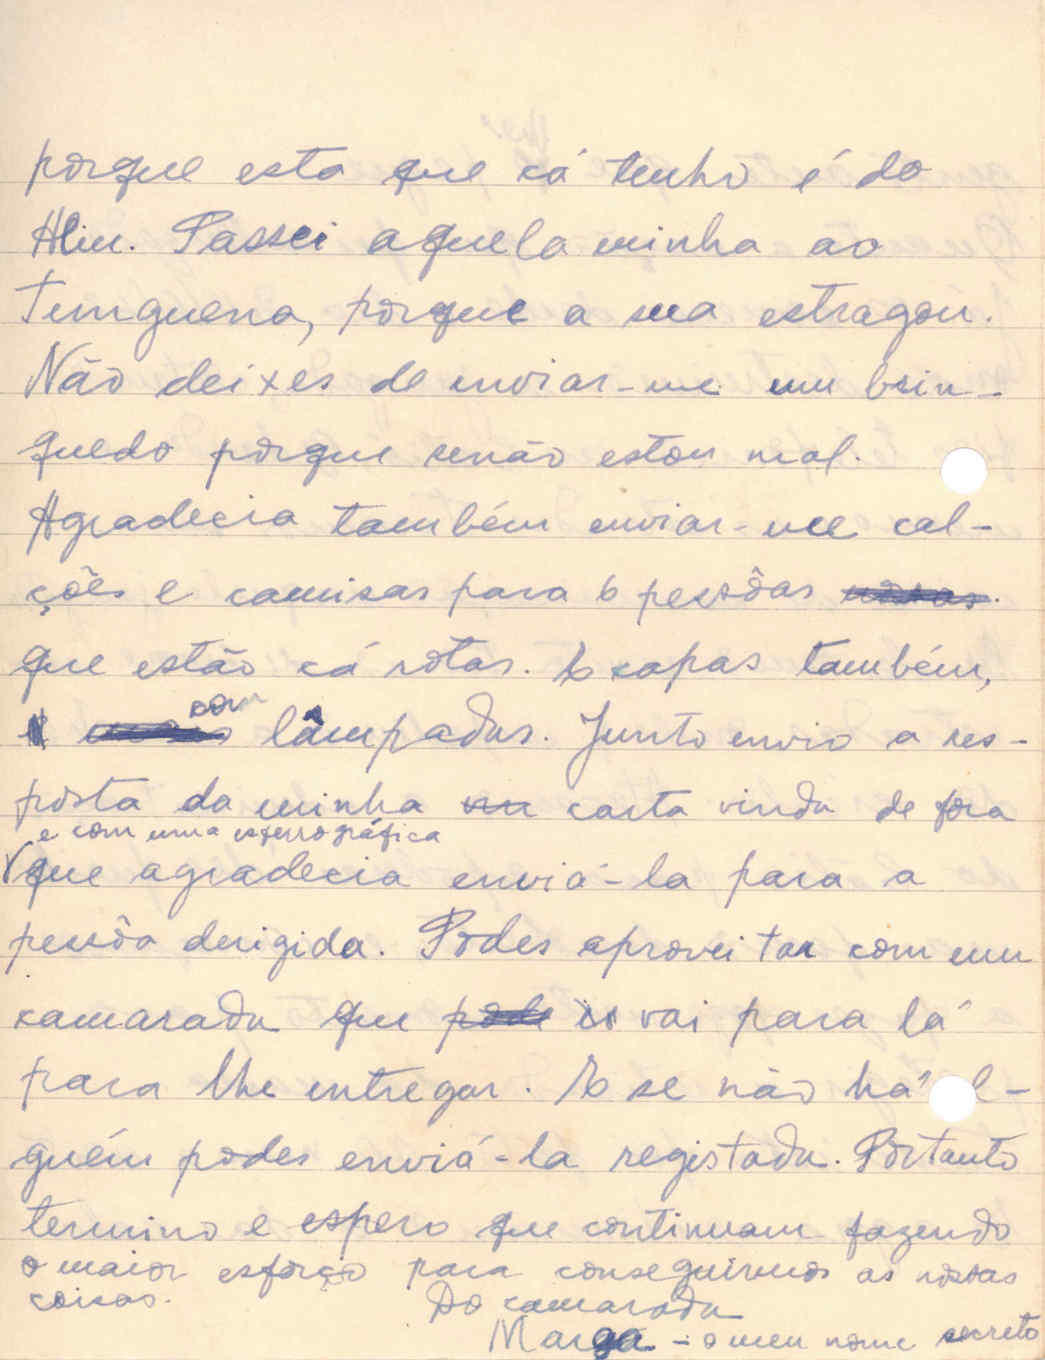 porque esta que cá tenho é do
Alin. Passei aquela minha ao
Tunguena, porque a sua estragou.
Não deixes de enviar-me um brin-
quedo porque senão estou mal.
Agradecia também enviar-me cal-
ções e camisas para 6 pessôas
que estão cá rotas. E capas também,
com lâmpadas. Junto envio a res-
posta da minha carta vinda de fora
e com uma esferrográfica
que agradecia enviá-la para a
pessôa derigida. Podes aproveitar com um
camarada que vai para lá
para lhe entregar. E se não há al-
guém podes enviá-la registada. Portanto
termino e espero que continuam fazendo
o maior esforço para conseguirmos as nossas
coisas.
Do camarada
Marga - o meu nome secreto